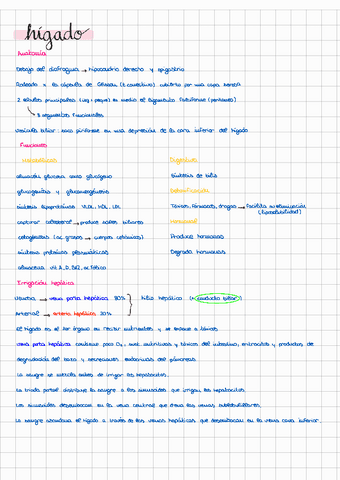 hígado
Anatomía
Debajo del diafragma → hipocondrio derecho y epigastrio
Rodeado x la cápsula de Glisson (t. conectivo) cubierto por una capa serosa
2 lóbulos principales (izq + peque) en medio el ligamento falciforme (peritoneo)
↳ 8 segmentos funcionales
Vesícula biliar: saco piriforme en una depresión de la cara inferior del hígado
Funciones
Metabólicas
Digestivas
almacena glucosa como glucógeno
Síntesis de bilis
glucogenólisis y gluconeogénesis
Detoxificación
síntesis lipoproteínas VLDL, HDL, LDL
Tóxicos, fármacos, drogas → facilita su eliminación (liposolubilidad)
captura colesterol → produce sales biliares
Hormonal
cetogénesis (ac. grasos → cuerpos cetónicos)
Produce hormonas
síntesis proteínas plasmáticas
Degrada hormonas
almacena vit A, D, B12, ac. fólico
Irrigación hepática
Venosa → vena porta hepática 80%
hilio hepático (+ conducto biliar)
Arterial → arteria hepática 20%
El hígado es el 1er órgano en recibir nutrientes y se expone a tóxicos.
vena porta hepática contiene poco O₂, mat. nutritivos y tóxicos del intestino, eritrocitos y productos de
degradación del bazo y secreciones endocrinas del páncreas.
La sangre se mezcla antes de irrigar los hepatocitos.
La triada portal distribuye la sangre a los sinusoides que irrigan los hepatocitos
Los sinusoides desembocan en la vena central que drena las venas sublobulillares.
La sangre abandona el hígado a través de las venas hepáticas que desembocan en la vena cava inferior.